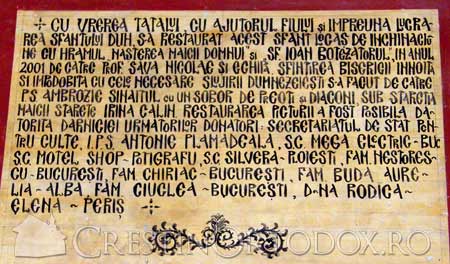 + CU VREREA TATALUI, CU AJUTORUL FIULUI și IMPREUNA LUCRA-
REA SFANTULUI DUH, SA RESTAURAT ACEST SFANT LOCAS DE INCHINACIU-
NE CU HRAMUL "NASTEREA MAICII DOMNULUI" și "SF. IOAN BOTEZĂTORUL", IN ANUL
2001 DE CATRE PROF. SAVA NICOLAE SI ECHIPA. SFINTIREA BISERICII INNOITA
SI IMPODOBITA CU CELE NECESARE SLUJIRII DUMNEZEIESTI S-A FACUT DE CATRE
P.S. AMBROZIE SINAITUL CU UN SOBOR DE PREOTI SI DIACONI, SUB STARETIA
MAICII STARETE IRINA CALIN. RESTAURAREA PICTURII A FOST POSIBILA DA-
TORITA DARNICIEI URMATORILOR DONATORI: SECRETARIATUL DE STAT PEN-
TRU CULTE, I.P.S. ANTONIE PLAMADEALA, S.C. MEGA ELECTRIC-BUC,
S.C. MOTEL, SHOP-POTIGRAFU, S.C. SILVERA-PLOIESTI, FAM. NESTORES-
CU-BUCURESTI, FAM. CHIRIAC-BUCURESTI, FAM. BUDA AURE-
LIA-ALBA, FAM. CIUCLEA-BUCURESTI, D-NA RODICA-
ELENA-PERIȘ
CRESTINORTODOX.RO